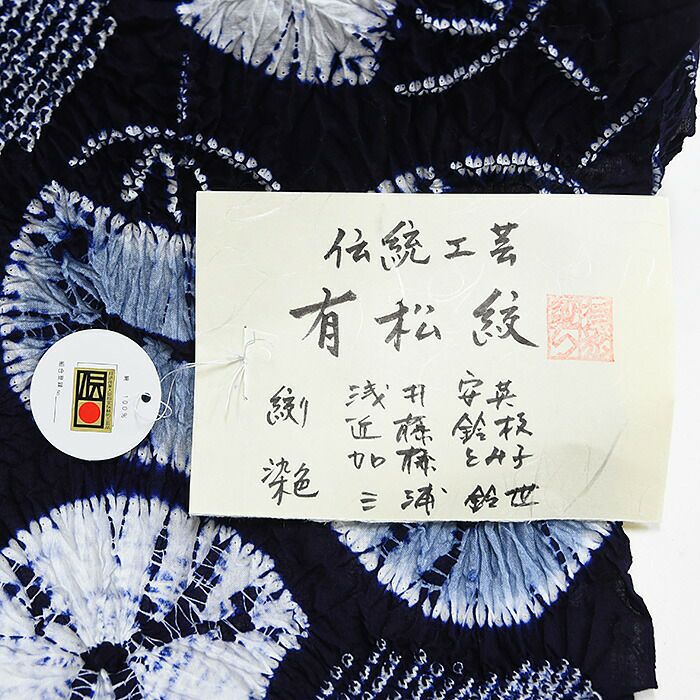 伝統工芸
有松絞
絞り 浅井安英
近藤鈴枝
加藤とみ子
染色 三浦鈴世
伝
100%